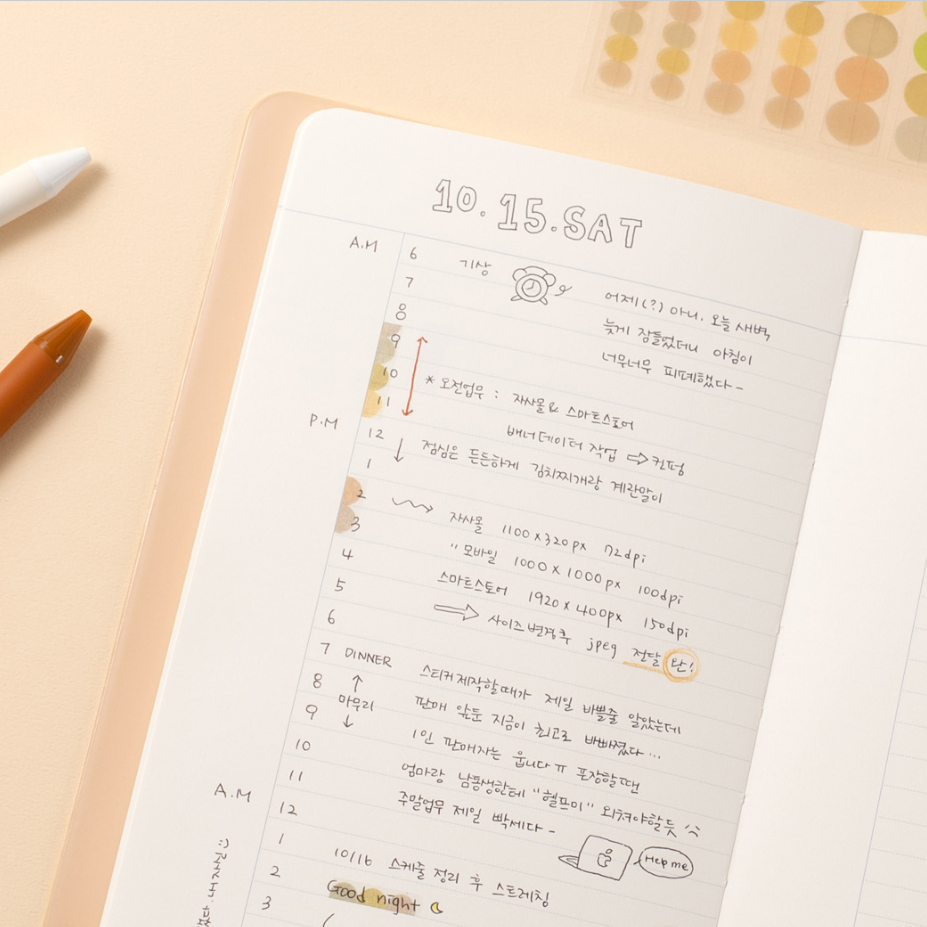 10.15.SAT
A.M 6 기상
7 어제(?) 아니, 오늘 새벽
8 늦게 잠들었더니 아침이
9 너무너무 피폐했다~
10 * 오전업무 : 자사몰 & 스마트스토어
11 배너데이터 작업 ⇨ 컨펌
P.M 12 ↓ 점심은 든든하게 김치찌개랑 계란말이
1
2 자사몰 1100 x 320px 72dpi
3 〃 모바일 1000 x 1000px 100dpi
4 스마트스토어 1920 x 400px 150dpi
5 ⇒ 사이즈 변경 후 jpeg 전달 탄!
6
7 DINNER 스티커제작할때가 제일 바쁠줄 알았는데
8 ↑ 판매 앞둔 지금이 최고로 바빠졌다...
마무리
9 ↓ 1인 판매자는 웁니다 ㅠ 포장할땐
10 엄마랑 남동생한테 "헬프미" 외쳐야할듯
11 주말업무 제일 빡세다~
Help me
A.M 12
1 10/16 스케줄 정리 후 스트레칭
2 Good night
3
내 자신 :)